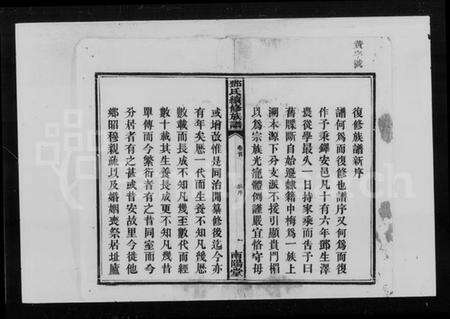 黃字號
復修族譜新序
譜何為而復修也譜序又何為而復
作予秉鐸安邑凡十有六年鄧生澤
喪從學最久一日持家乘而告予曰
舊牒斷自始遷隸籍中梅為一族上
溯本源下分支派不援引顯貴門楣
以為宗族光寵體例謹嚴宜恪守毋
鄧氏續修族譜
卷首
新序
一
南陽堂
或增改惟是同治閒纂修後迄今亦
有年矣歷一代而生養不知凡幾歷
數載而長成不知凡幾至數代而經
數十載其生養長成更不知凡幾昔
單傳而今繁衍者有之昔同室而今
分居者有之甚或昔安故里今徙他
鄉昭穆親疏以及婚姻喪祭居址廬